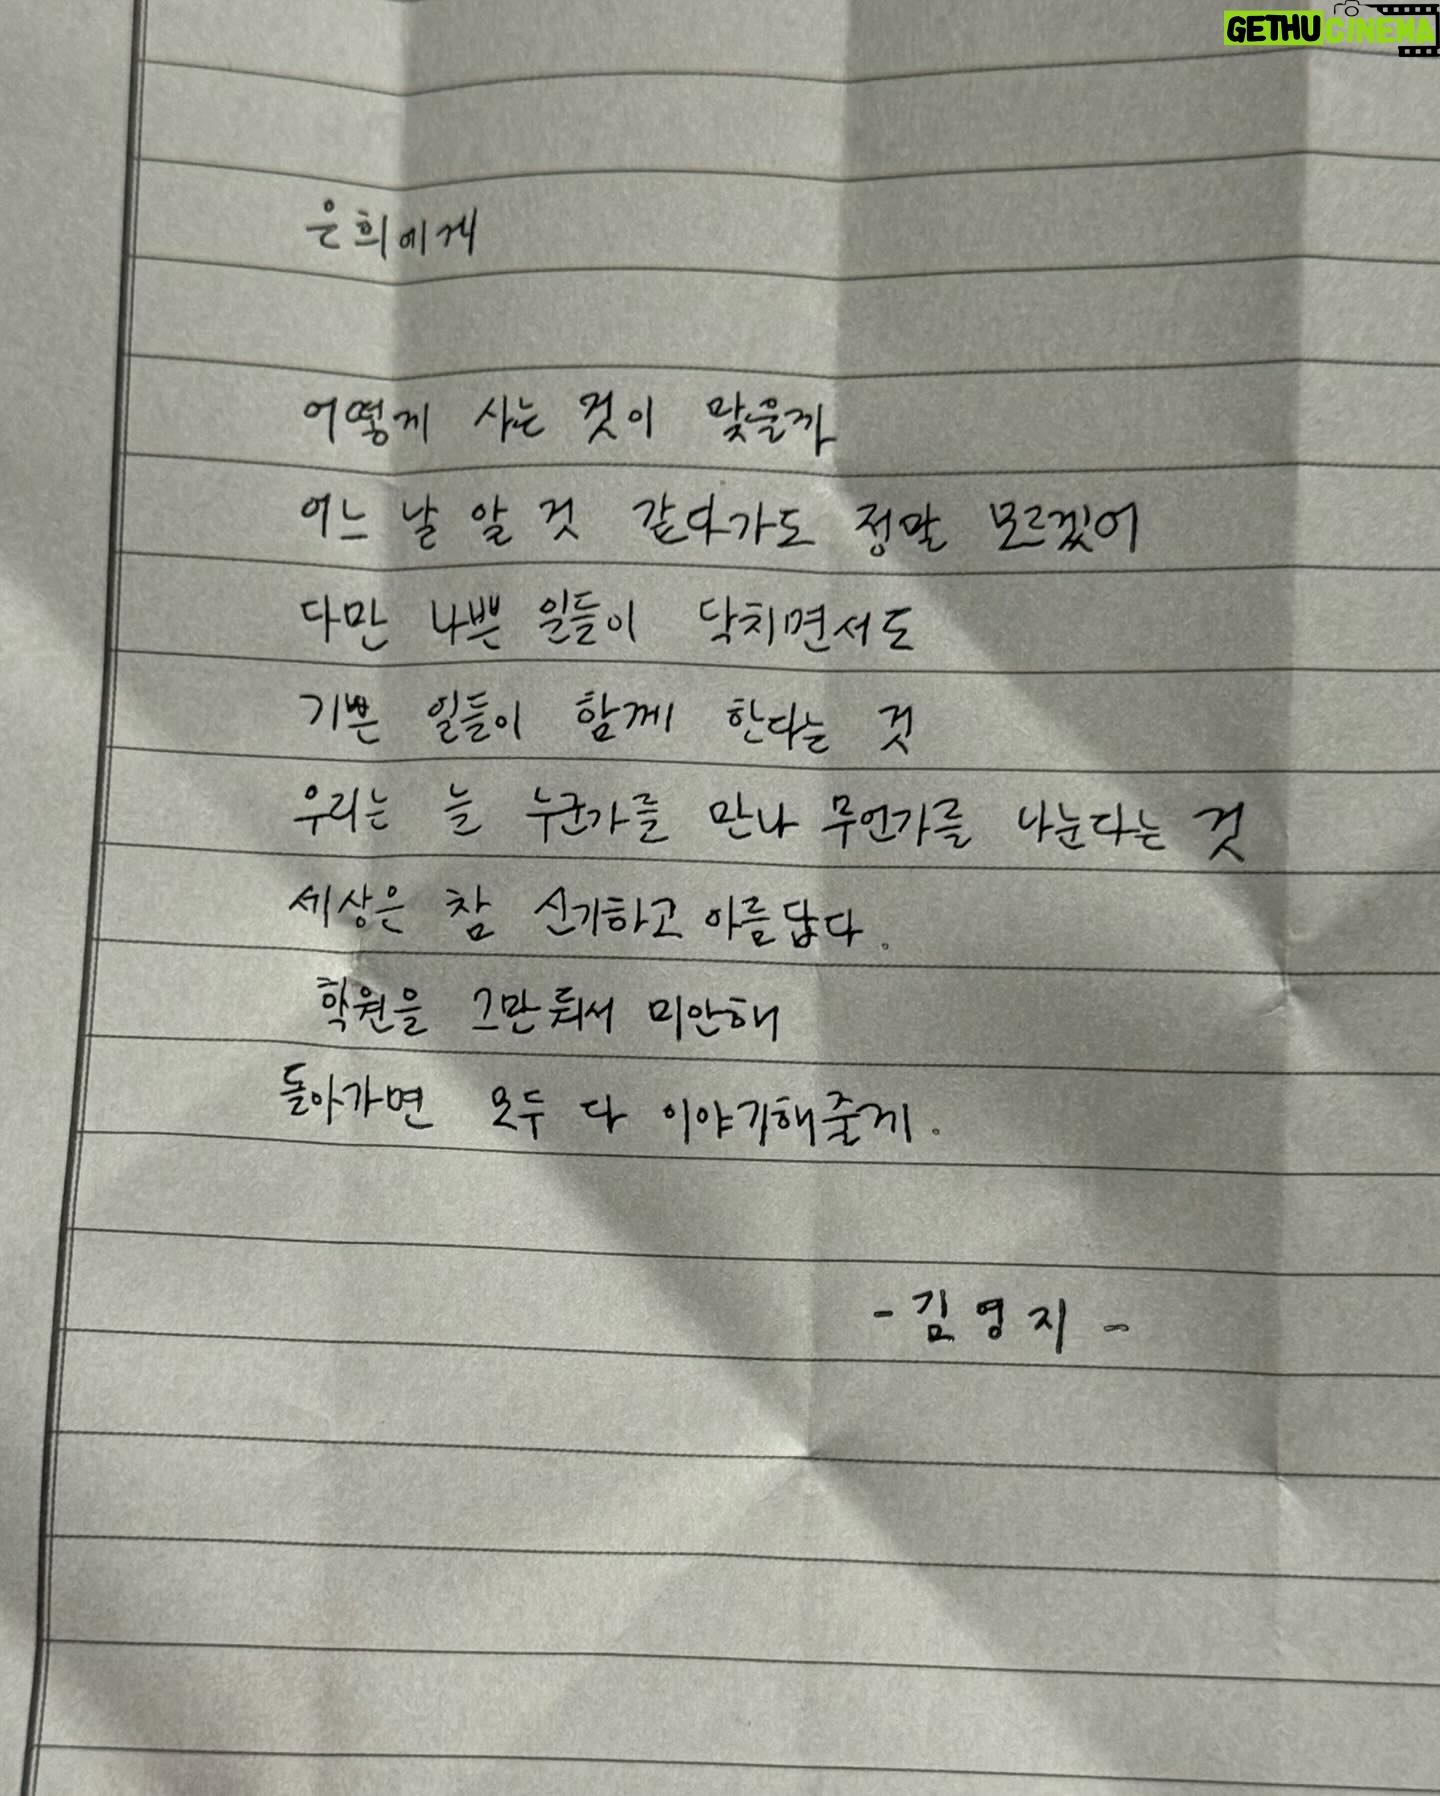 GETHUCINEMA
은희에게
어떻게 사는 것이 맞을까
어느 날 알 것 같다가도 정말 모르겠어
다만 나쁜 일들이 닥치면서도
기쁜 일들이 함께 한다는 것
우리는 늘 누군가를 만나 무언가를 나눈다는 것
세상은 참 신기하고 아름답다.
학원을 그만둬서 미안해
돌아가면 모두 다 이야기해줄게.
- 김영지 -